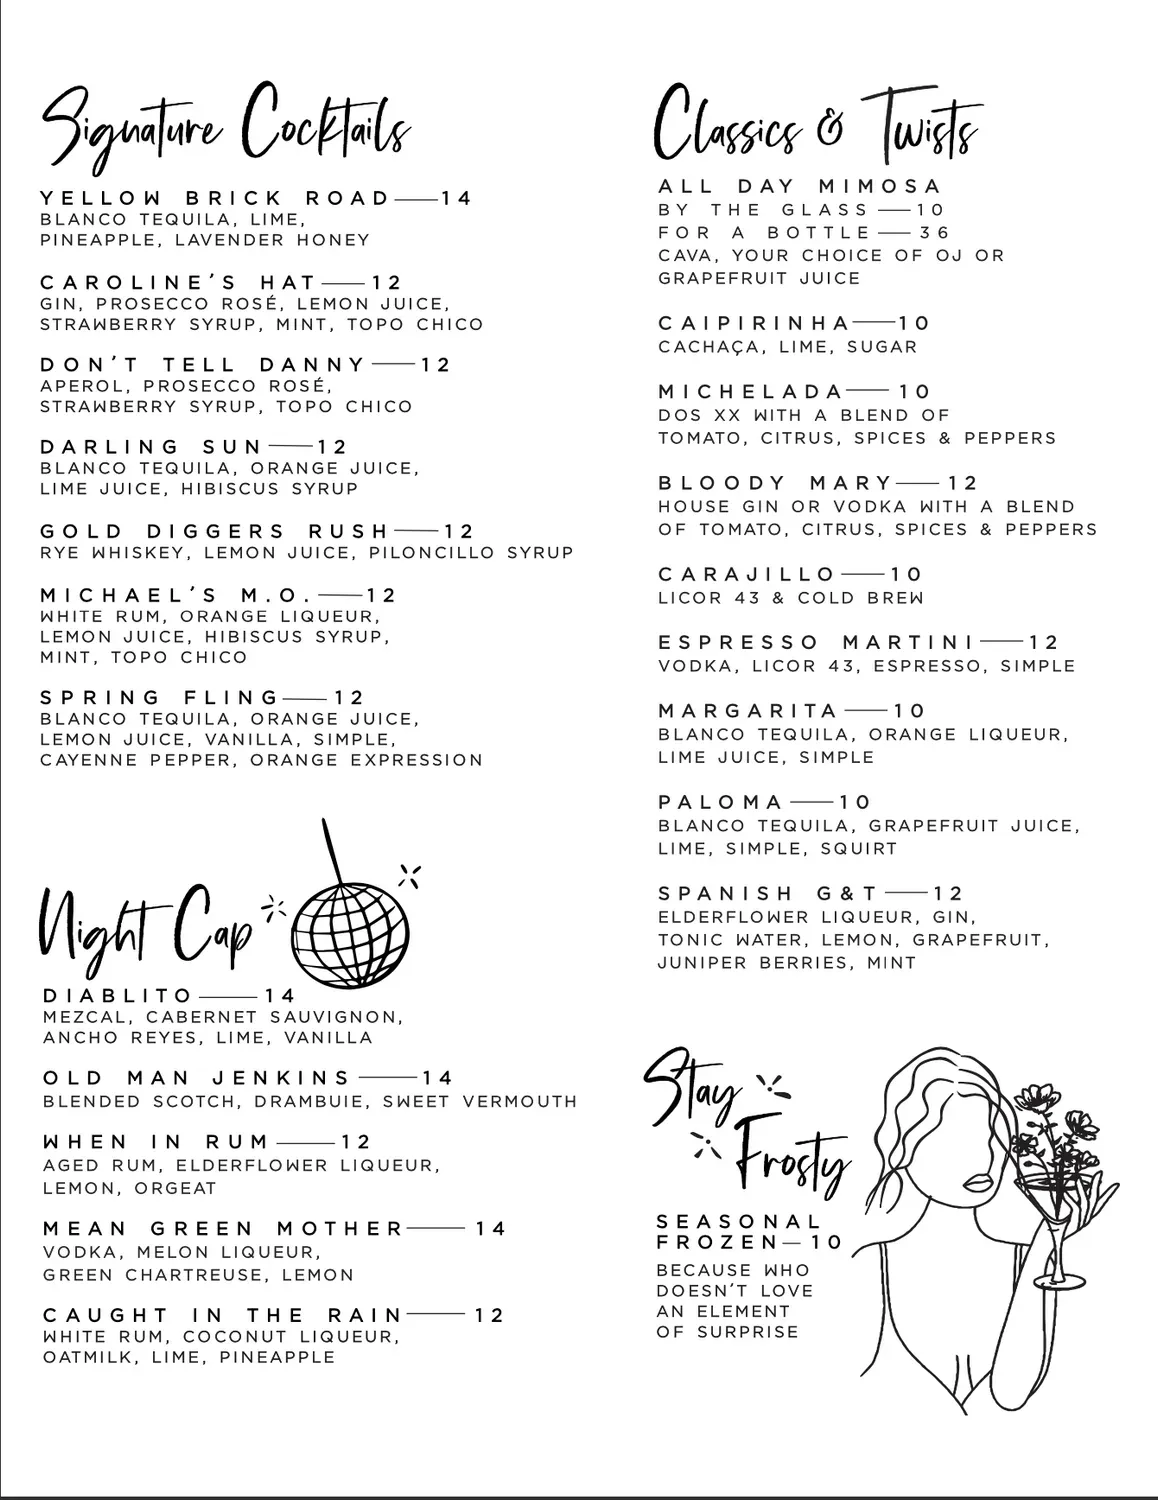 Signature Cocktails
YELLOW BRICK ROAD——14
BLANCO TEQUILA, LIME,
PINEAPPLE, LAVENDER HONEY
CAROLINE'S HAT——12
GIN, PROSECCO ROSÉ, LEMON JUICE,
STRAWBERRY SYRUP, MINT, TOPO CHICO
DON'T TELL DANNY——12
APEROL, PROSECCO ROSÉ,
STRAWBERRY SYRUP, TOPO CHICO
DARLING SUN——12
BLANCO TEQUILA, ORANGE JUICE,
LIME JUICE, HIBISCUS SYRUP
GOLD DIGGERS RUSH——12
RYE WHISKEY, LEMON JUICE, PILONCILLO SYRUP
MICHAEL'S M.O.——12
WHITE RUM, ORANGE LIQUEUR,
LEMON JUICE, HIBISCUS SYRUP,
MINT, TOPO CHICO
SPRING FLING——12
BLANCO TEQUILA, ORANGE JUICE,
LEMON JUICE, VANILLA, SIMPLE,
CAYENNE PEPPER, ORANGE EXPRESSION
Night Cap
DIABLITO——14
MEZCAL, CABERNET SAUVIGNON,
ANCHO REYES, LIME, VANILLA
OLD MAN JENKINS——14
BLENDED SCOTCH, DRAMBUIE, SWEET VERMOUTH
WHEN IN RUM——12
AGED RUM, ELDERFLOWER LIQUEUR,
LEMON, ORGEAT
MEAN GREEN MOTHER——14
VODKA, MELON LIQUEUR,
GREEN CHARTREUSE, LEMON
CAUGHT IN THE RAIN——12
WHITE RUM, COCONUT LIQUEUR,
OATMILK, LIME, PINEAPPLE
Classics & Twists
ALL DAY MIMOSA
BY THE GLASS——10
FOR A BOTTLE——36
CAVA, YOUR CHOICE OF OJ OR
GRAPEFRUIT JUICE
CAIPIRINHA——10
CACHAÇA, LIME, SUGAR
MICHELADA——10
DOS XX WITH A BLEND OF
TOMATO, CITRUS, SPICES & PEPPERS
BLOODY MARY——12
HOUSE GIN OR VODKA WITH A BLEND
OF TOMATO, CITRUS, SPICES & PEPPERS
CARAJILLO——10
LICOR 43 & COLD BREW
ESPRESSO MARTINI——12
VODKA, LICOR 43, ESPRESSO, SIMPLE
MARGARITA——10
BLANCO TEQUILA, ORANGE LIQUEUR,
LIME JUICE, SIMPLE
PALOMA——10
BLANCO TEQUILA, GRAPEFRUIT JUICE,
LIME, SIMPLE, SQUIRT
SPANISH G&T——12
ELDERFLOWER LIQUEUR, GIN,
TONIC WATER, LEMON, GRAPEFRUIT,
JUNIPER BERRIES, MINT
Stay
Frosty
SEASONAL
FROZEN—10
BECAUSE WHO
DOESN'T LOVE
AN ELEMENT
OF SURPRISE